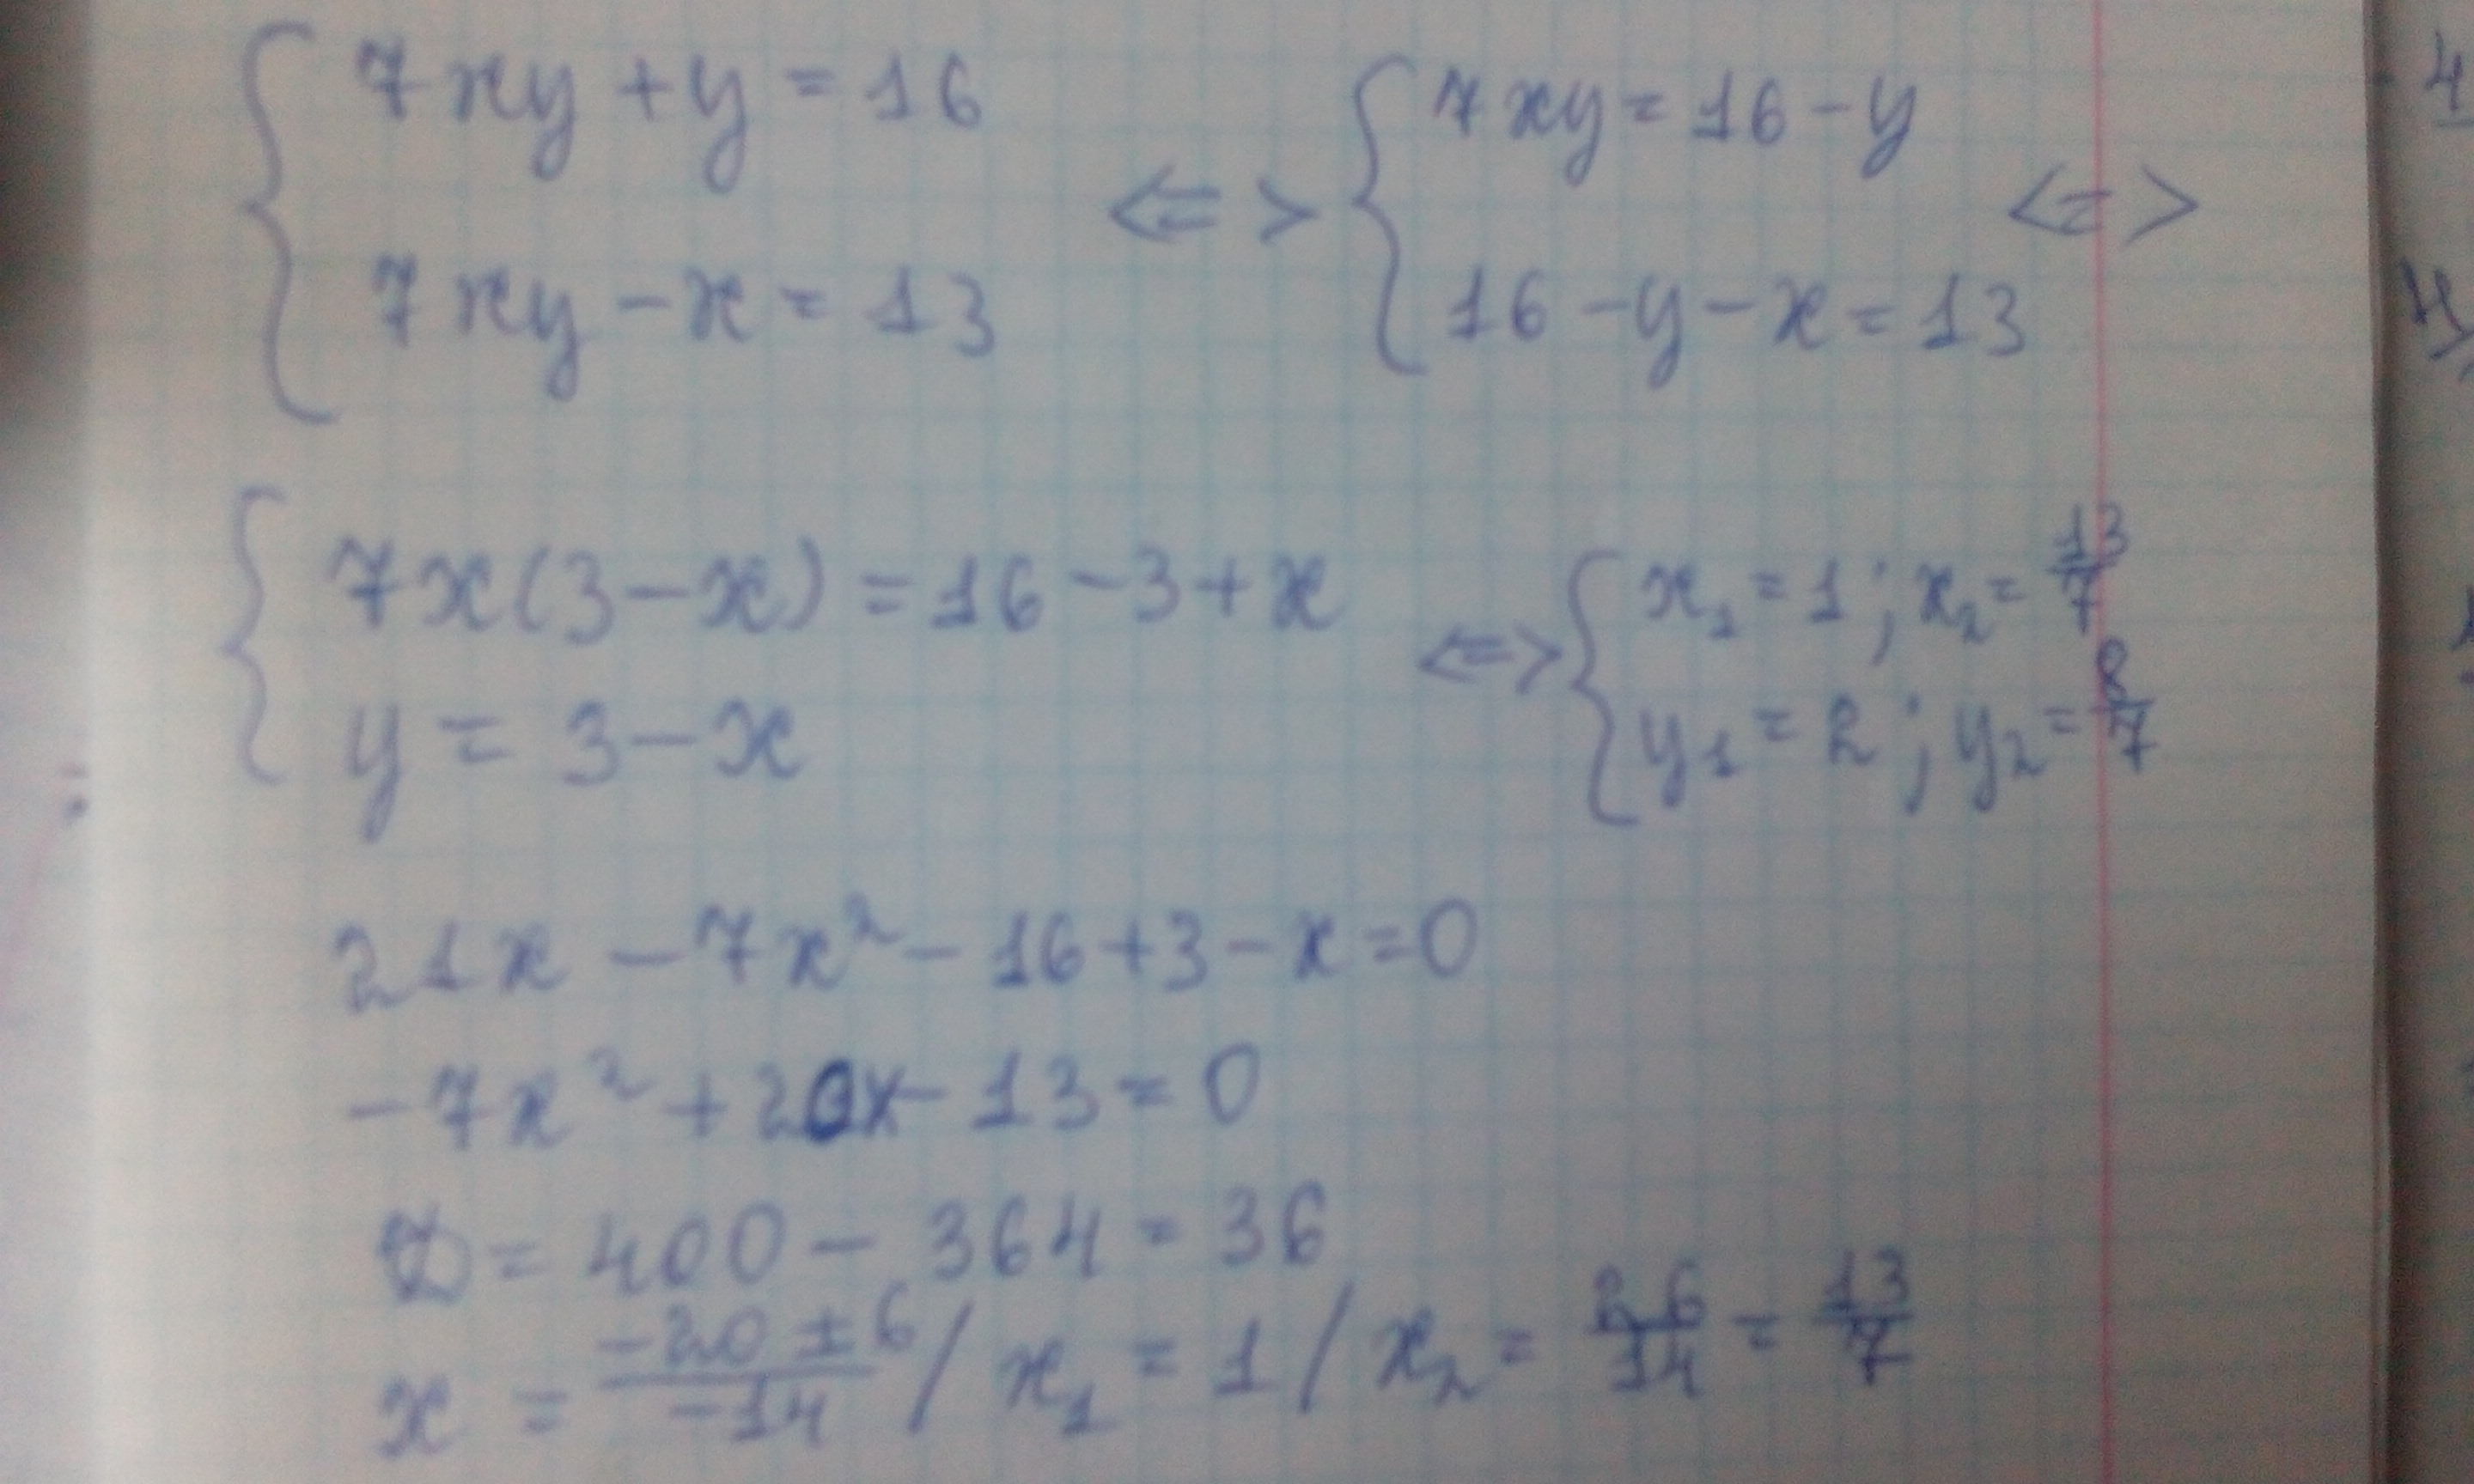 { 7xy + y = 16
7xy - x = 13 <=> { 7xy = 16 - y
16 - y - x = 13 <=>
{ 7x(3 - x) = 16 - 3 + x
y = 3 - x <=> { x₁ = 1 ; x₂ = 13/7
y₁ = 2 ; y₂ = 8/7
21x - 7x² - 16 + 3 - x = 0
-7x² + 20x - 13 = 0
D = 400 - 364 = 36
x = (-20 ± 6)/(-14) / x₁ = 1 / x₂ = 26/14 = 13/7